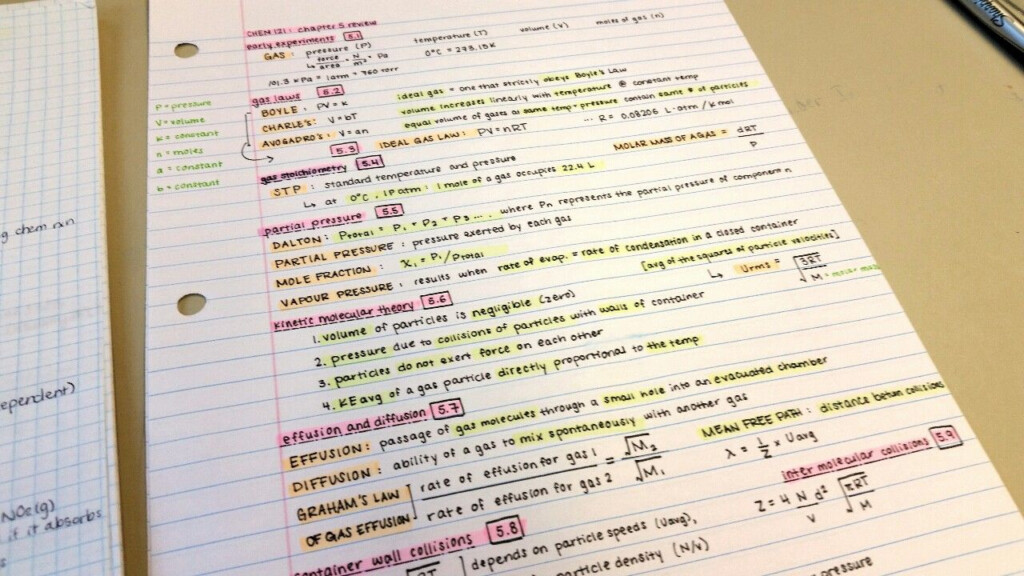 CHEM 121: chapter 5 review
early experiments 5.1
GAS: pressure (P) temperature (T) volume (V) moles of gas (n)
↳ force/area = N/m² = Pa 0°C = 273.15K
101.3 kPa = 1atm = 760 torr
gas laws 5.2
BOYLE: PV = K ideal gas = one that strictly obeys Boyle's Law
CHARLE'S: V = bT volume increases linearly with temperature @ constant temp
AVOGADRO'S: V = an equal volume of gases at same temp + pressure contain same # of particles
5.3 IDEAL GAS LAW: PV = nRT ... R = 0.08206 L·atm / K·mol
P = pressure
V = volume
K = constant
n = moles
a = constant
b = constant
gas stoichiometry 5.4 MOLAR MASS OF A GAS = dRT/P
STP: standard temperature and pressure
↳ at 0°C, 1P atm: 1 mole of a gas occupies 22.4 L
partial pressure 5.5
DALTON: Ptotal = P₁ + P₂ + P₃ .... where Pn represents the partial pressure of component n
PARTIAL PRESSURE: pressure exerted by each gas
MOLE FRACTION: X₁ = P₁/Ptotal
VAPOUR PRESSURE: results when rate of evap. = rate of condensation in a closed container
[avg of the squares of particle velocities]
↳ Urms = √3RT/M ← molar mass
kinetic molecular theory 5.6
1. volume of particles is negligible (zero)
2. pressure due to collisions of particles with walls of container
3. particles do not exert force on each other
4. KEavg of a gas particle directly proportional to the temp
effusion and diffusion 5.7
EFFUSION: passage of gas molecules through a small hole into an evacuated chamber
DIFFUSION: ability of a gas to mix spontaneously with another gas
GRAHAM'S LAW
OF GAS EFFUSION
rate of effusion for gas 1 = √M₂
rate of effusion for gas 2 √M₁
MEAN FREE PATH: distance betwn collisions
λ = 1/Z × Uavg
intermolecular collisions 5.9
Z = 4 N/V d² √πRT/M
container wall collisions 5.8
depends on particle speeds (Uavg),
particle density (N/V)
RT
pressure
g chem rxn
ependent)
NO₂(g)
if it absorbs
Sharpie